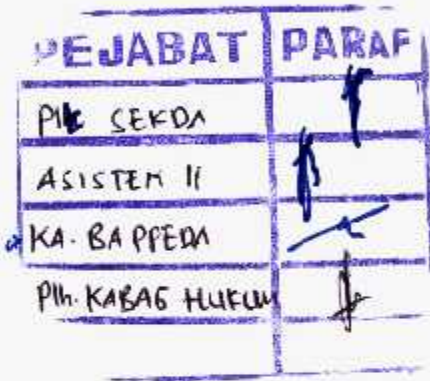 PEJABAT PARAF
Plh SEKDA
ASISTEN II
KA. BAPPEDA
Plh. KABAG HUKUM